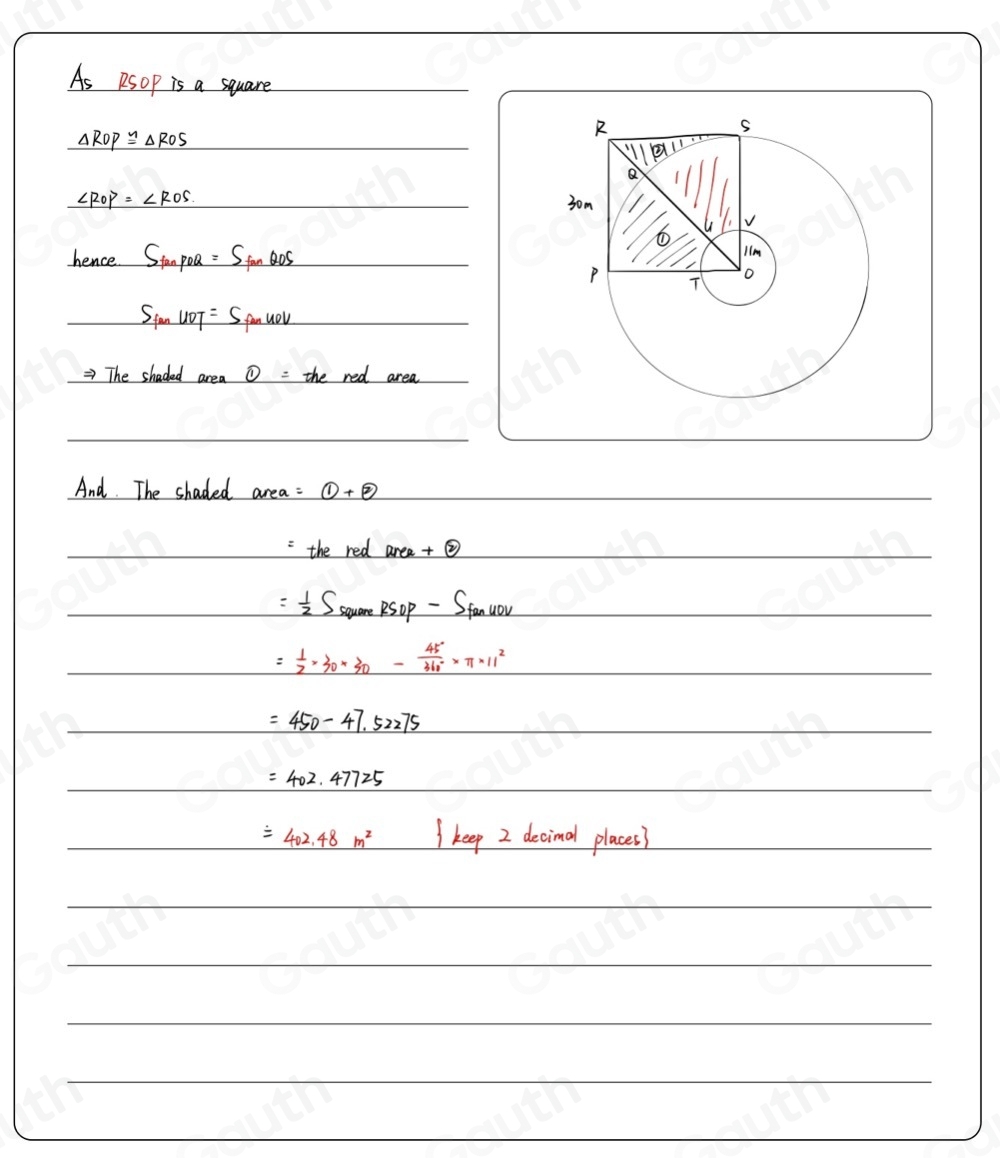 As RSOP is a square
△ROP ≌ △ROS
∠ROP = ∠ROS.
hence. S fan POQ = S fan QOS
S fan UOT = S fan UOV.
⇒ The shaded area ① = the red area
R S
② Q
30m U V
① 11m
P T O
And. The shaded area = ① + ②
= the red area + ②
= 1/2 S square RSOP - S fan UOV
= 1/2 × 30 × 30 - 45°/360° × π × 11²
= 450 - 47.52275
= 402.47725
≐ 402.48 m² {keep 2 decimal places}
Gauth